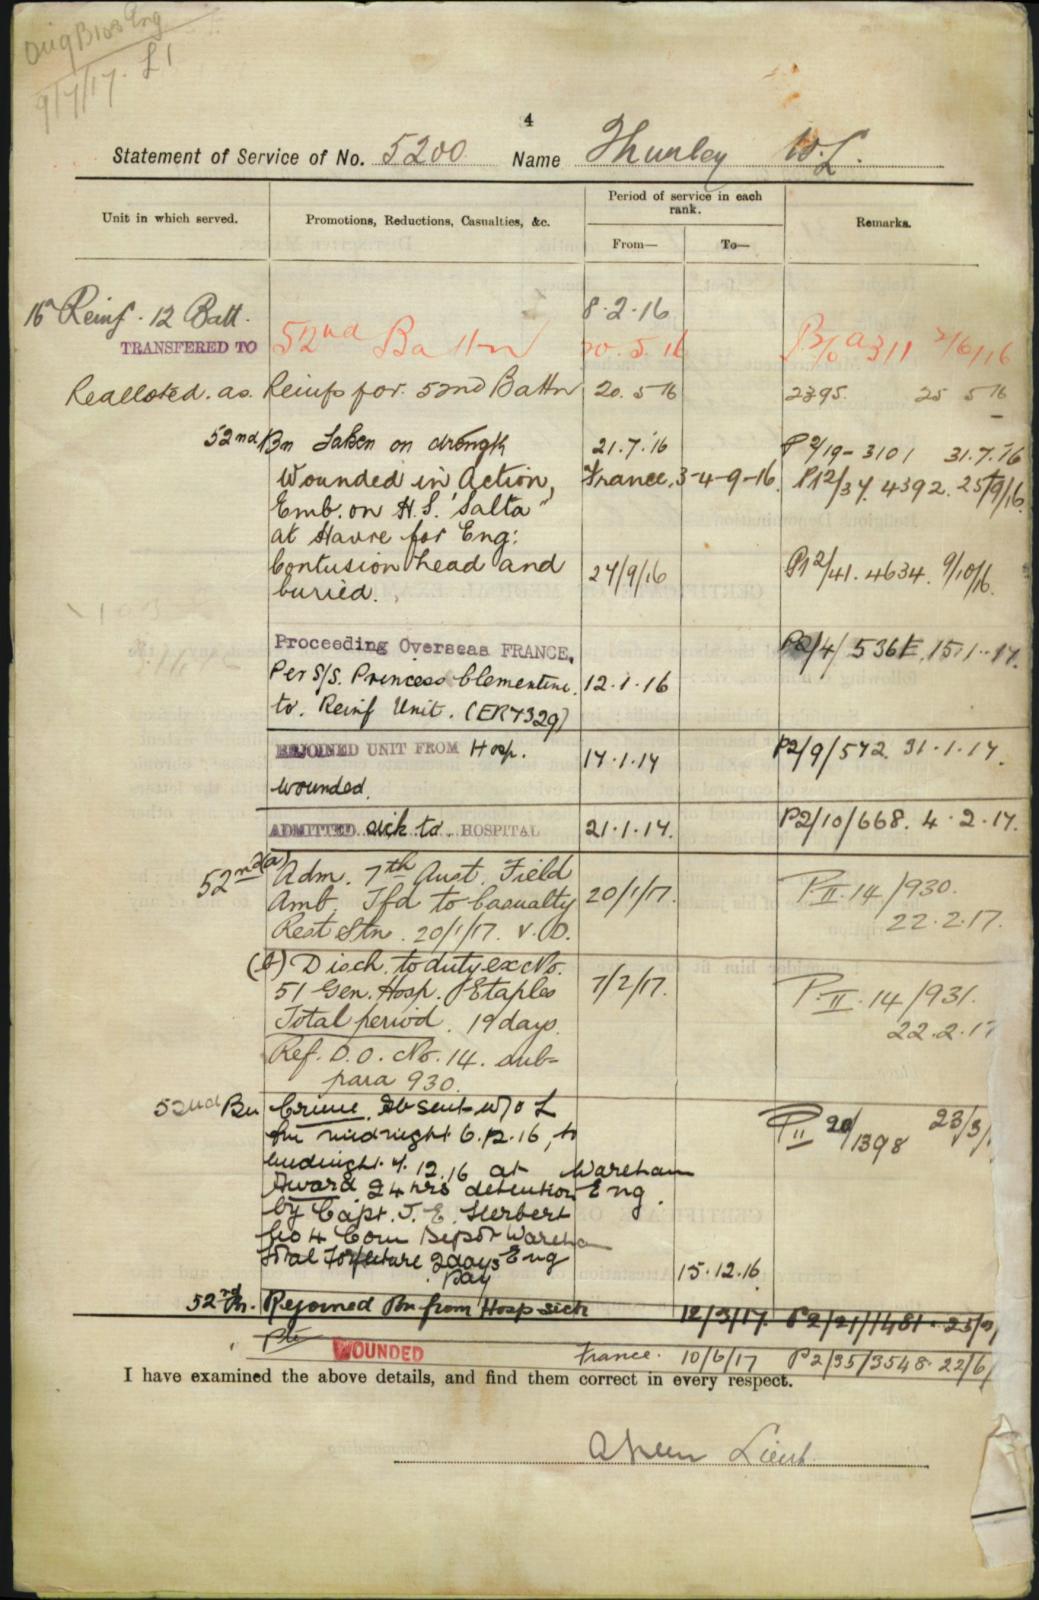 Orig B103 Eng
9/7/17. L1
4
Statement of Service of No. 5200 Name Thurley W.L.
Unit in which served. Promotions, Reductions, Casualties, &c. Period of service in each rank. From— To— Remarks.
16 Reinf. 12 Batt. 8.2.16
TRANSFERED TO 52nd Battn 20.5.16 311 2/6/16
Realloted. as. Reinfs for. 52nd Battn 20.5 16 2395. 25 5 16
52nd Bn Taken on strength 21.7.16 P2/19-3101 31.7.16
Wounded in Action, France. 3-4-9-16. P12/37. 4392. 25/9/16.
Emb. on H.S. "Salta"
at Havre for Eng:
Contusion head and 27/9/16 P12/41. 4634. 9/10/16.
buried.
Proceeding Overseas FRANCE, P2/4/ 536E. 15.1.17.
Per S/S. Princess Clementine. 12.1.16
to. Reinf Unit. (ER7329)
REJOINED UNIT FROM Hosp. 17.1.17 P2/9/572. 31.1.17.
wounded.
ADMITTED sick to. HOSPITAL 21.1.17. P2/10/668. 4.2.17.
52nd (a) Adm. 7th Aust. Field
Amb. Tfd to Casualty 20/1/17. P.II.14/930.
Rest Stn. 20/1/17. V.D. 22.2.17.
(b) Disch. to duty ex No.
51 Gen. Hosp. Etaples 7/2/17. P.II.14/931.
Total period. 19 days. 22.2.17
Ref. D.O. No. 14. sub-
para 930.
52nd Bn Crime. Absent W/O L P II 20/1398 23/3/
fm midnight 6.12.16, to
midnight 7.12.16 at Wareham
Award 24 hrs detention Eng.
by Capt. J. E. Herbert
No 4 Com Depot Wareham
Total Forfeiture 2 days Eng
Pay 15.12.16
52nd Bn. Rejoined Bn from Hosp sick 12/3/17. P2/21/1481. 25/3/
Pte WOUNDED France. 10/6/17 P2/35/3548. 22/6/
I have examined the above details, and find them correct in every respect.
Lieut.